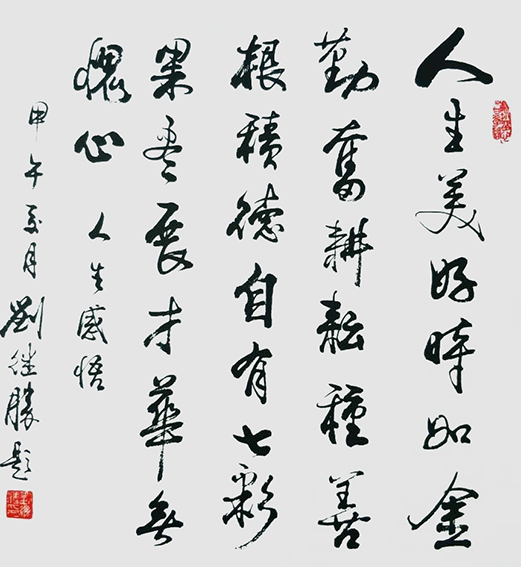 人生美好時如金
勤奮耕耘種善
根積德自有七彩
果盡展才華無
愧心 人生感悟
甲午夏月劉继勝題